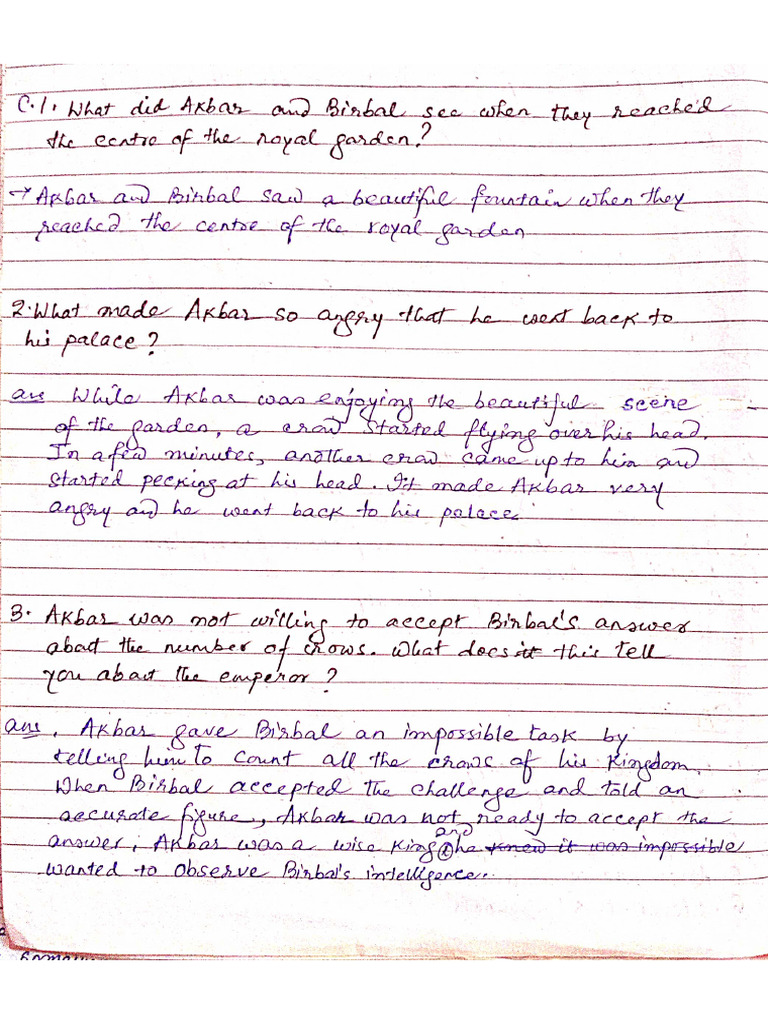 C.1. What did Akbar and Birbal see when they reached
the centre of the royal garden?
→ Akbar and Birbal saw a beautiful fountain when they
reached the centre of the royal garden
2. What made Akbar so angry that he went back to
his palace?
ans While Akbar was enjoying the beautiful scene
of the garden, a crow started flying over his head.
In a few minutes, another crow came up to him and
started pecking at his head. It made Akbar very
angry and he went back to his palace.
3. Akbar was not willing to accept Birbal's answer
about the number of crows. What does it this tell
you about the emperor?
ans. Akbar gave Birbal an impossible task by
telling him to count all the crows of his Kingdom.
When Birbal accepted the challenge and told an
accurate figure, Akbar was not ready to accept the
and
answer. Akbar was a wise king he knew it was impossible
wanted to observe Birbal's intelligence.